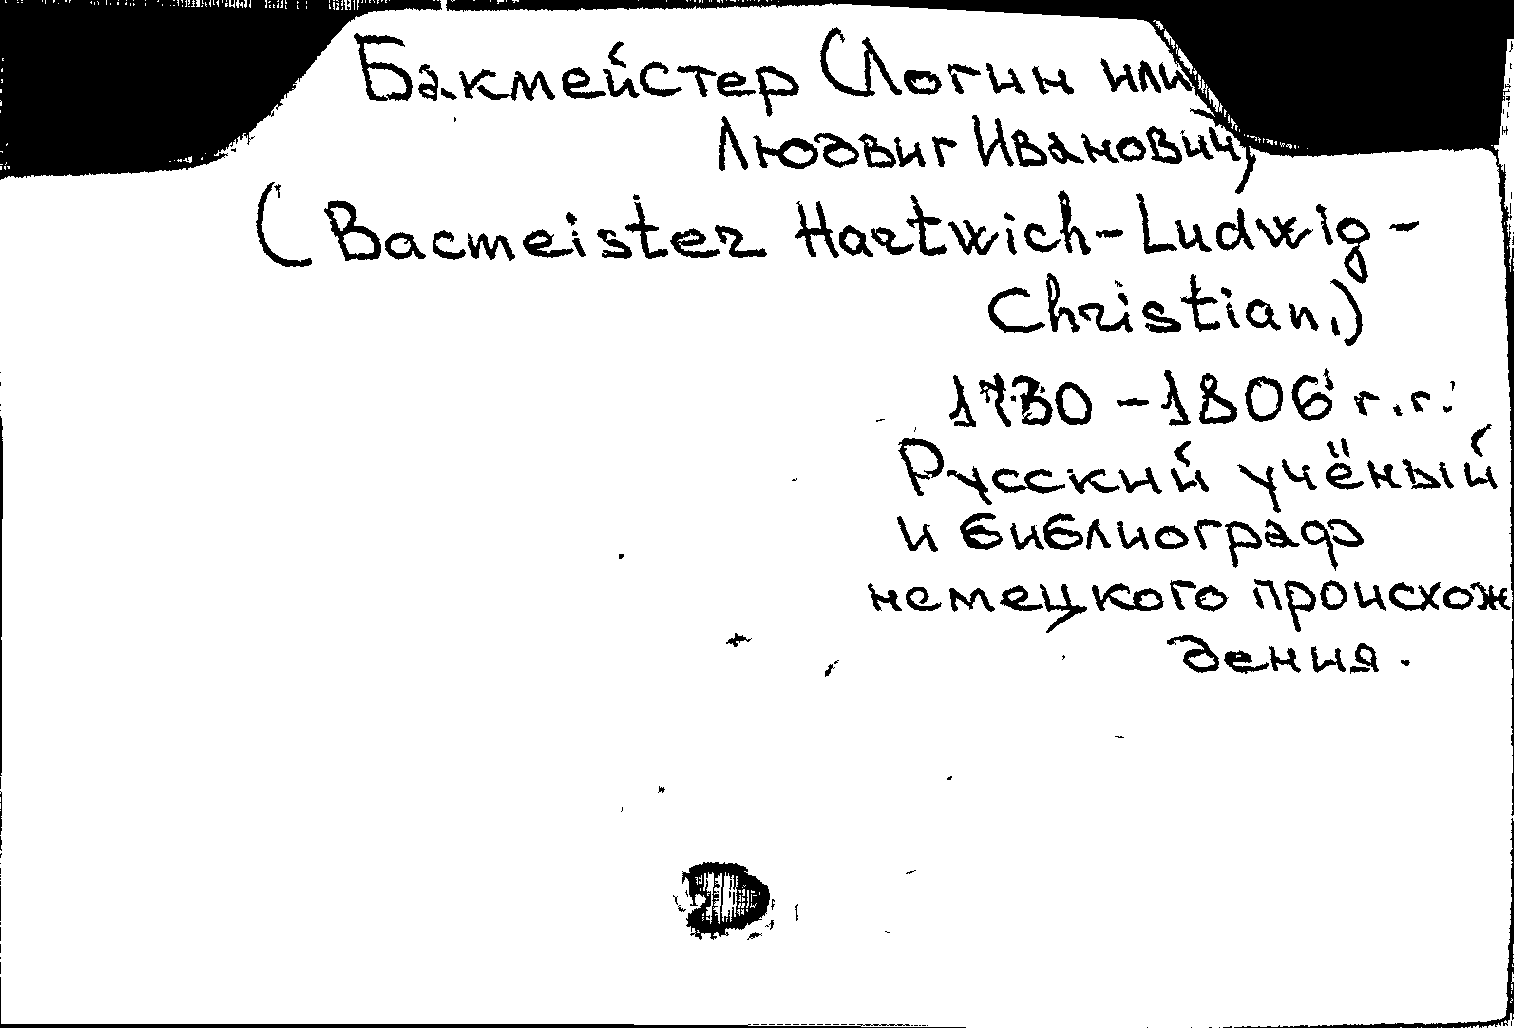 Бакмейстер (Логин или
Людвиг Иванович,
(Bacmeister Hartwich-Ludwig-
Christian,)
1730 - 1806 г.г.
Русский учёный
и библиограф
немецкого происхож
дения.